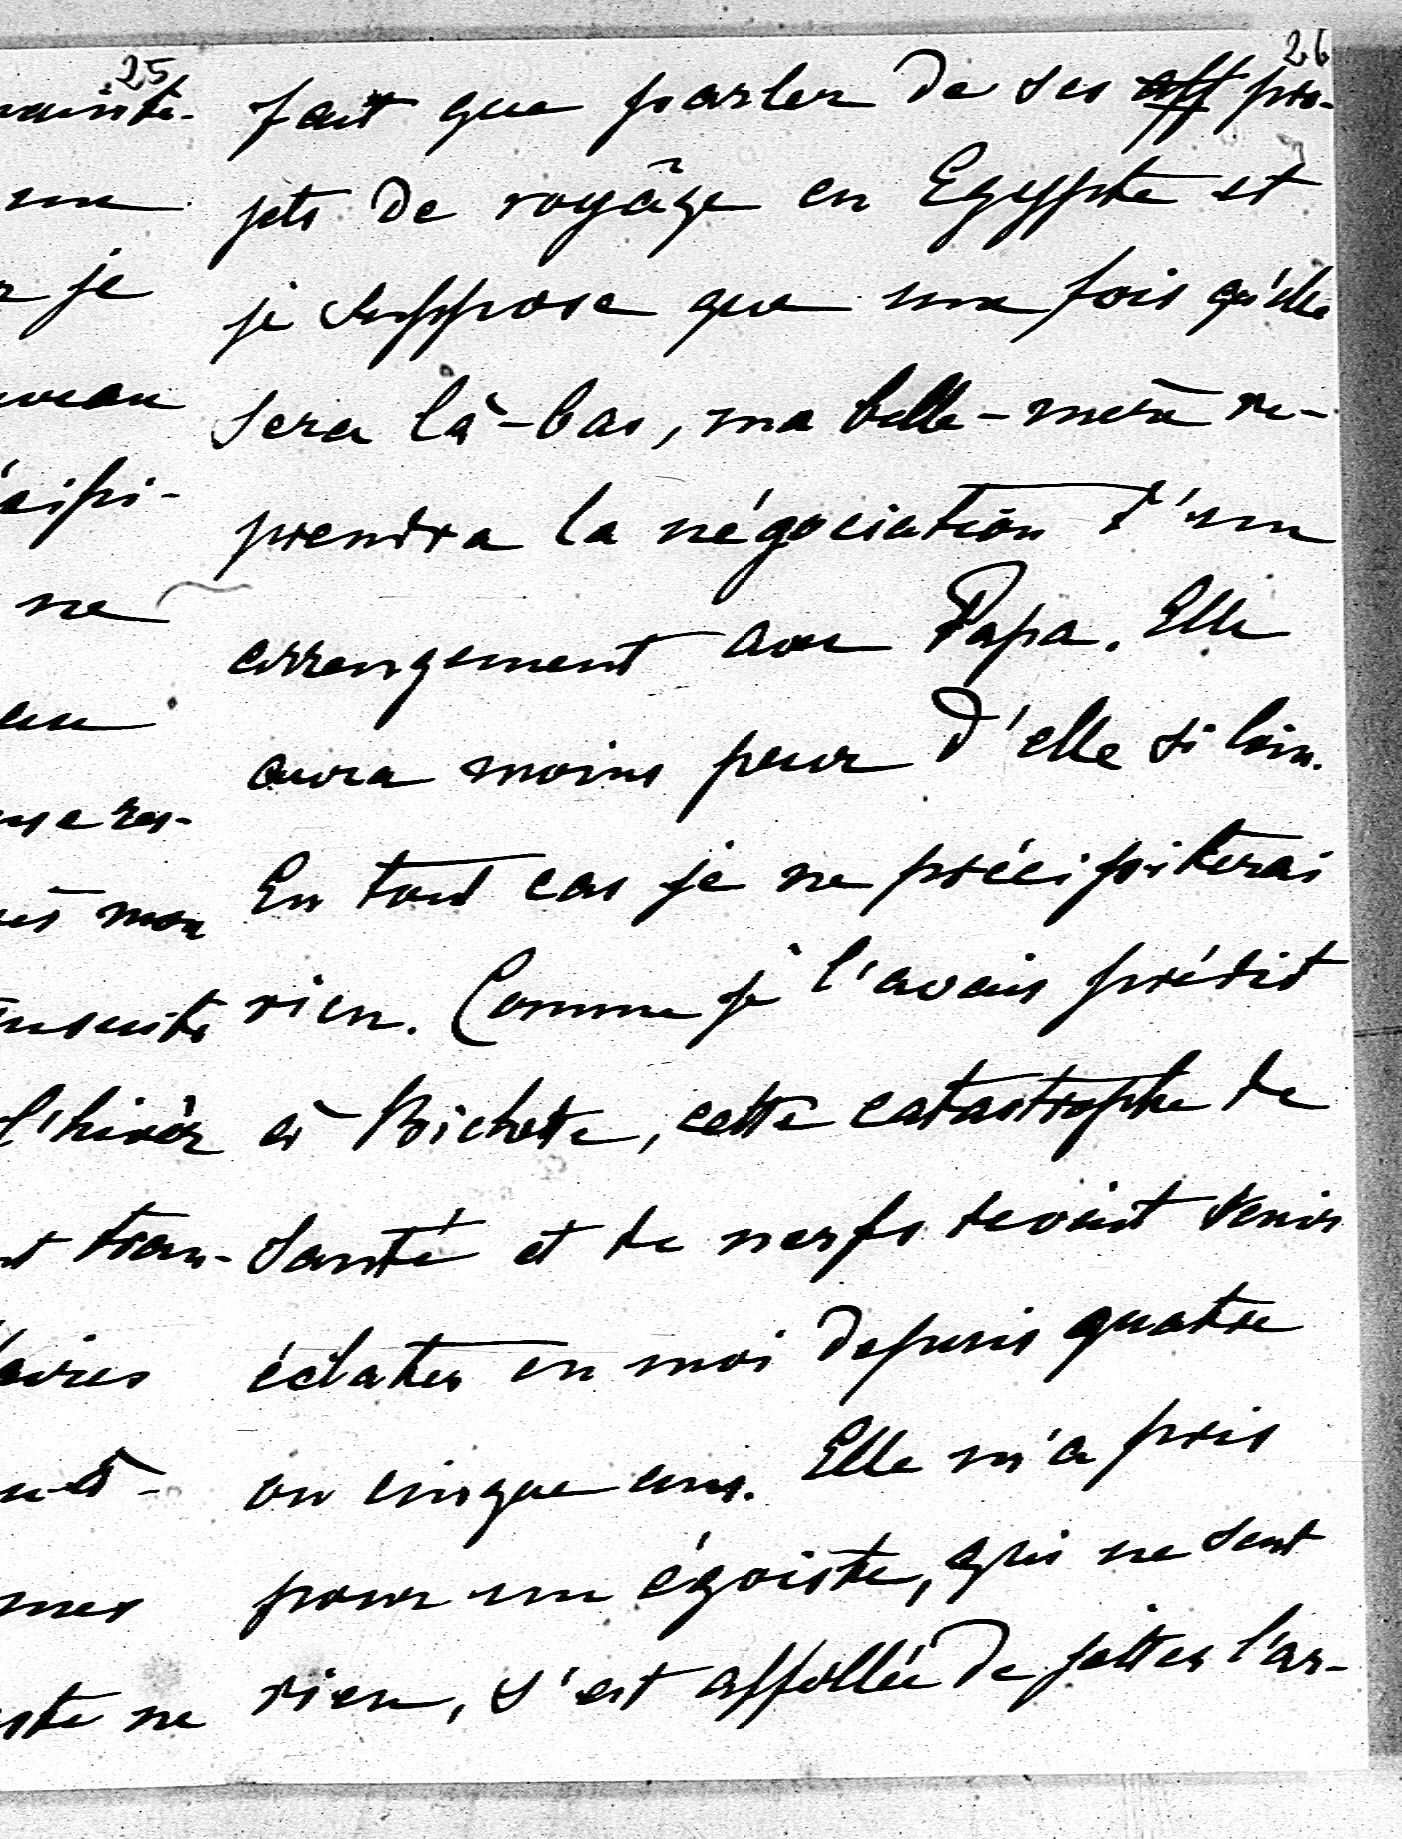 25
mainte-
un
r je
uveau
écipi-
ne
mon
l'hiver
tran-
aires
mes
ste ne
26
fait que parler de ses aff pro-
jets de voyage en Egypte et
je suppose que une fois qu'elle
sera là-bas, ma belle-mère re-
prendra la négociation d'un
arrangement avec Papa. Elle
aura moins peur d'elle si loin.
En tout cas je ne précipiterai
rien. Comme je l'avais prédit
à Bichette, cette catastrophe de
santé et de nerfs devait venir
éclater en moi depuis quatre
ou cinque ans. Elle m'a pris
pour un égoiste, qui ne sent
rien, s'est affollée de jetter l'ar-